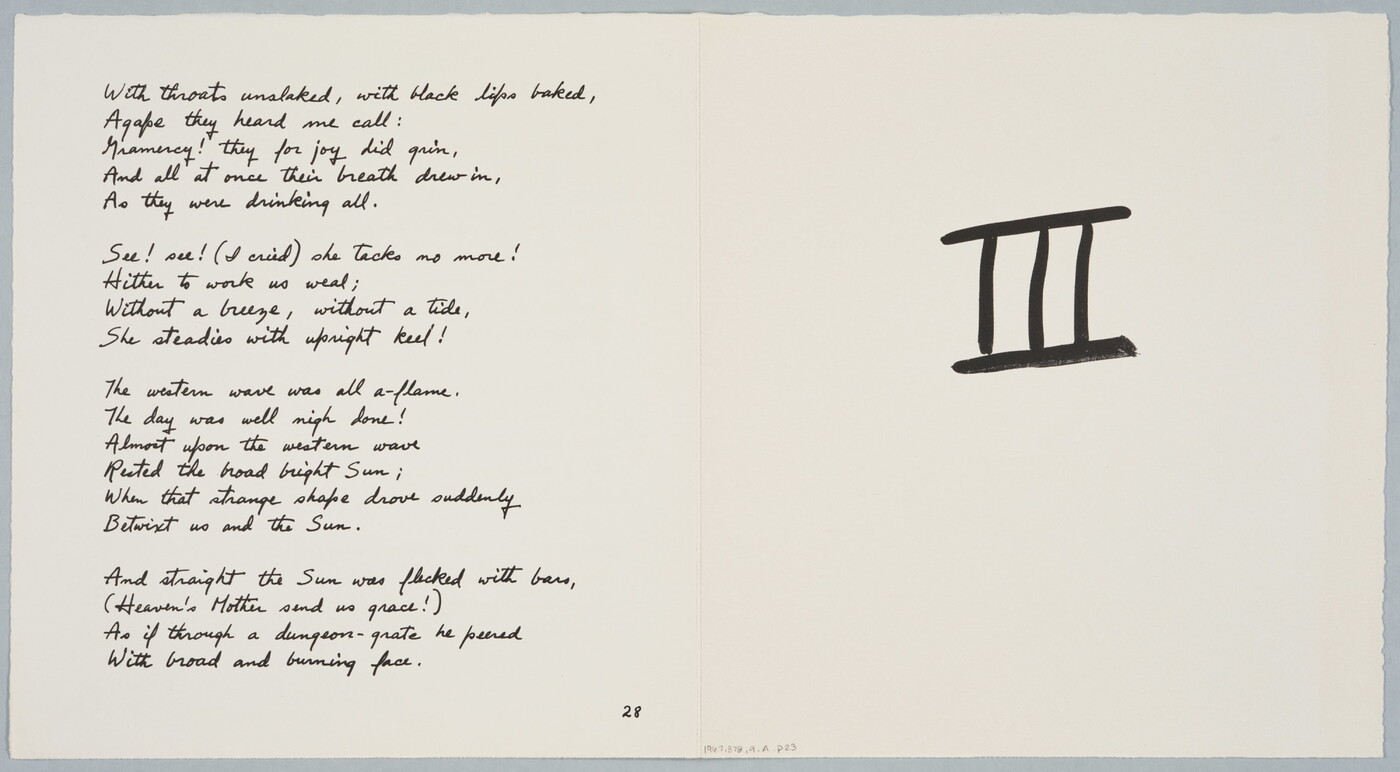 With throats unslaked, with black lips baked,
Agape they heard me call:
Gramercy! they for joy did grin,
And all at once their breath drew in,
As they were drinking all.
See! see! (I cried) she tacks no more!
Hither to work us weal;
Without a breeze, without a tide,
She steadies with upright keel!
The western wave was all a-flame.
The day was well nigh done!
Almost upon the western wave
Rested the broad bright Sun;
When that strange shape drove suddenly
Betwixt us and the Sun.
And straight the Sun was flecked with bars,
(Heaven's Mother send us grace!)
As if through a dungeon-grate he peered
With broad and burning face.
28
III
1967.378.9.A.p23